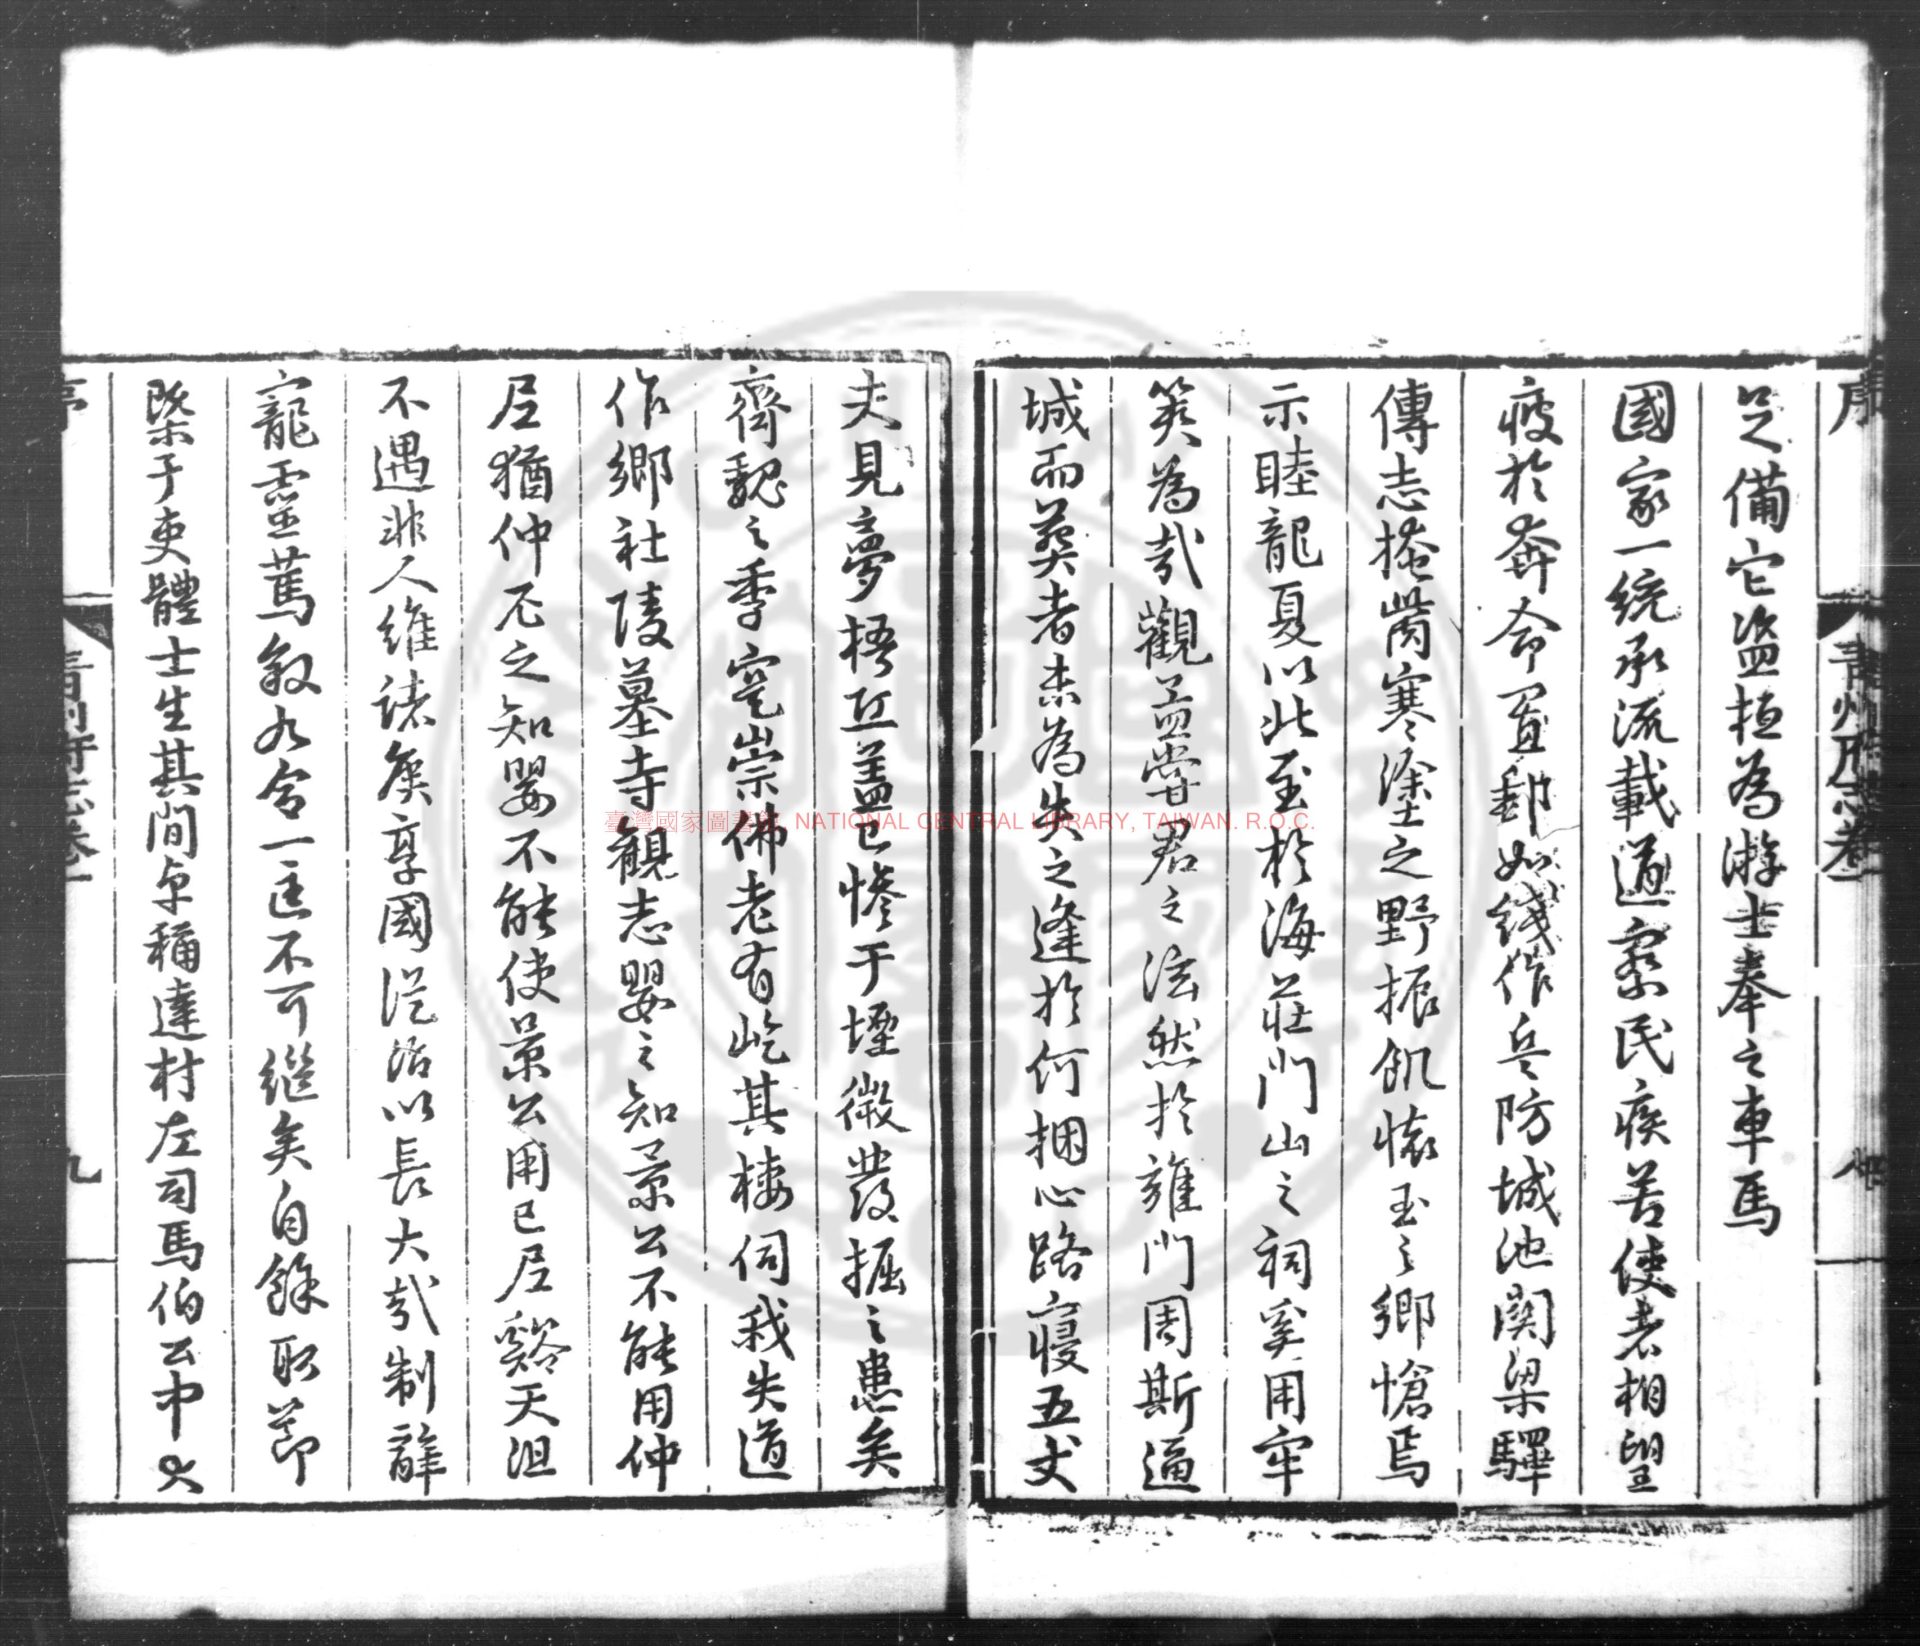 序
青州府志卷一
足備它盜桓為游士奉之車馬
國家一統承流載道察民疾苦使者相望
疲於奔命置郵如綫作兵防城池関梁驛
傳志掩骼寒塗之野振飢懷玉之鄉愴焉
示睦龍夏以此至於海莊門山之祠奚用牢
筴為哉觀孟嘗君之泫然於雍門周斯逼
城而葬者未為失之逢於何捆心路寢五丈
夫見夢梧丘盖已慘于堙微發掘之患矣
齊魏之季寔崇佛老有屹其棲伺我失道
作鄉社陵墓寺觀志嬰之知景公不能用仲
尼猶仲尼之知嬰不能使景公用已尼谿天沮
不遇非人維諸矦享國從始以長大哉制辭
寵靈蔦敘九合一匡不可繼矣自餘取節
槩于吏體士生其間卓稱達材左司馬伯公中
序
青州府志卷一
九
臺灣國家圖書館, NATIONAL CENTRAL LIBRARY, TAIWAN. R.O.C.